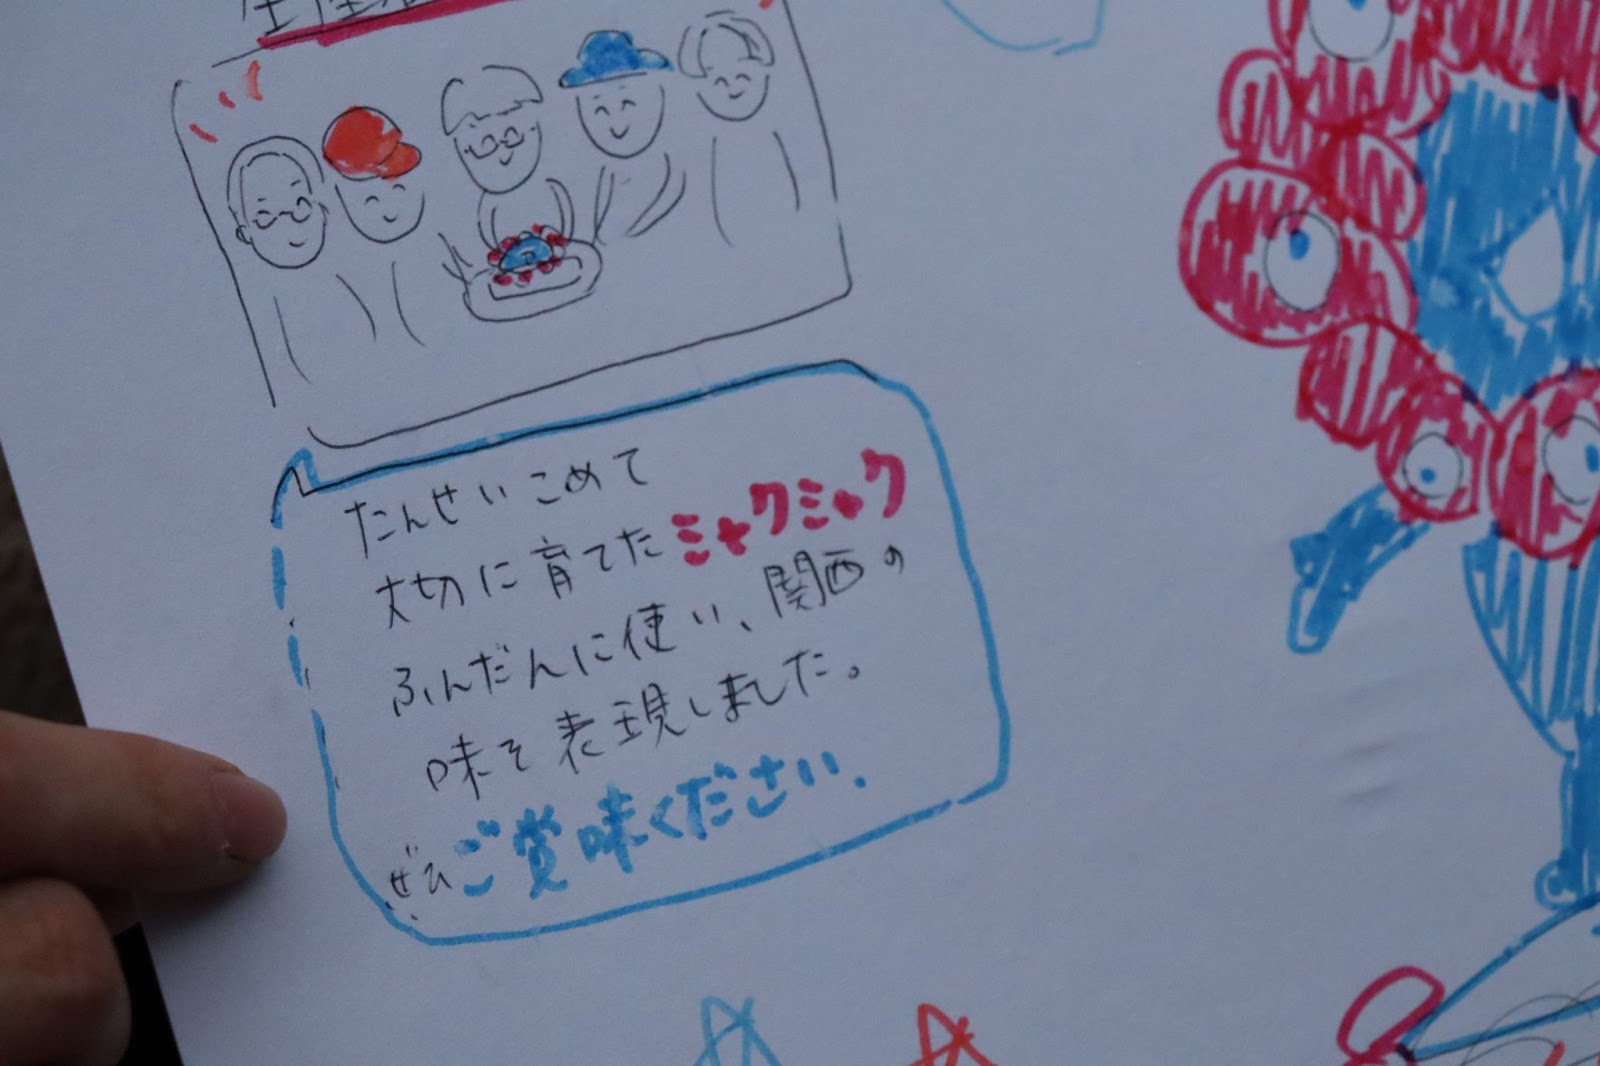 たんせいこめて
大切に育てたミャクミャク
ふんだんに使い、関西の
味を表現しました。
ぜひご賞味ください.